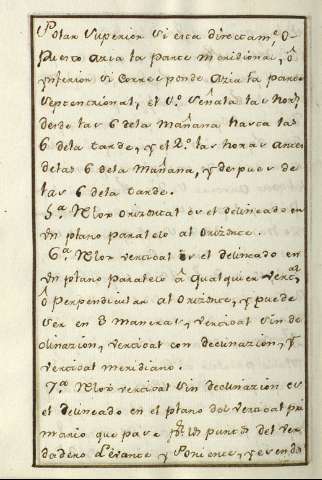 Polar Superior si esta directamte o-
puesto azia la parte meridional, ô
ynferior si corresponde azia la parte
septentrional, el 1º. señala las hors.
desde las 6 dela mañana hasta las
6 dela tarde, y el 2º. las horas antes
delas 6 dela mañana, y despues de
las 6 dela tarde.
5.ª Relox orizontal es el delineado en
vn plano paralelo al Orizonte.
6.ª Relox vertical es el delineado en
vn plano paralelo â qualquier vertcal
ô perpendicular al Orizonte, y puede
ser en 3 maneras, vertical sin de
clinazion, vertical con declinazion, y
vertical meridiano.
7.ª Relox vertical sin declinazion es
el delineado en el plano del vertical pri
mario que pasa pr. los puntos del ver
dadero Levante y Poniente, y siendo